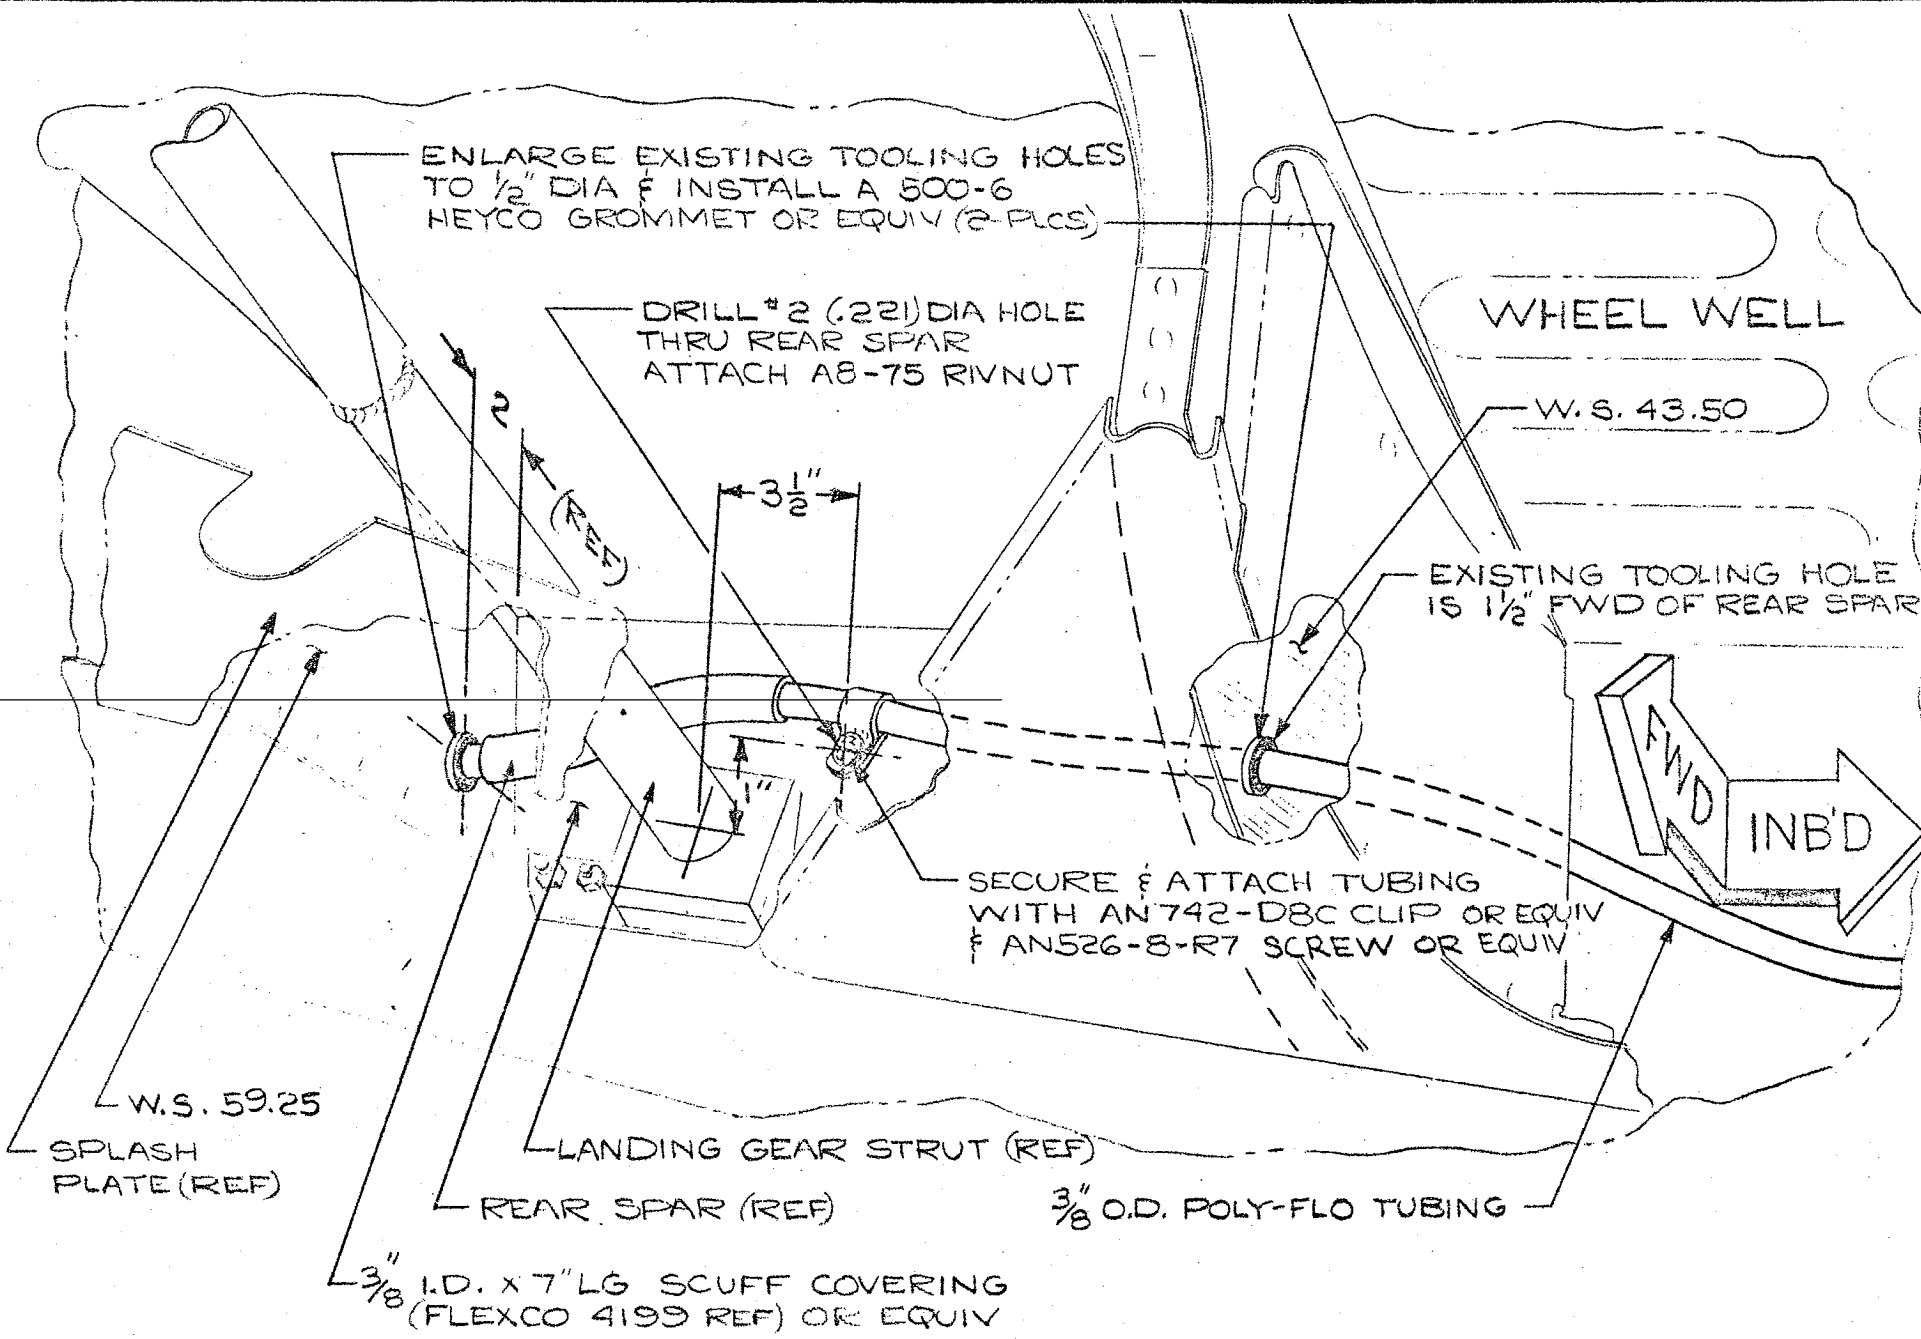 ENLARGE EXISTING TOOLING HOLES
TO 1/2" DIA & INSTALL A 500-6
HEYCO GROMMET OR EQUIV (2-PLCS)
DRILL #2 (.221) DIA HOLE
THRU REAR SPAR
ATTACH A8-75 RIVNUT
WHEEL WELL
W.S. 43.50
2
(REF)
3 1/2"
EXISTING TOOLING HOLE
IS 1 1/2" FWD OF REAR SPAR
1"
FWD
INB'D
SECURE & ATTACH TUBING
WITH AN742-D8C CLIP OR EQUIV
& AN526-8-R7 SCREW OR EQUIV
W.S. 59.25
SPLASH
PLATE (REF)
LANDING GEAR STRUT (REF)
REAR SPAR (REF)
3/8" O.D. POLY-FLO TUBING
3/8" I.D. x 7" LG SCUFF COVERING
(FLEXCO 4199 REF) OR EQUIV